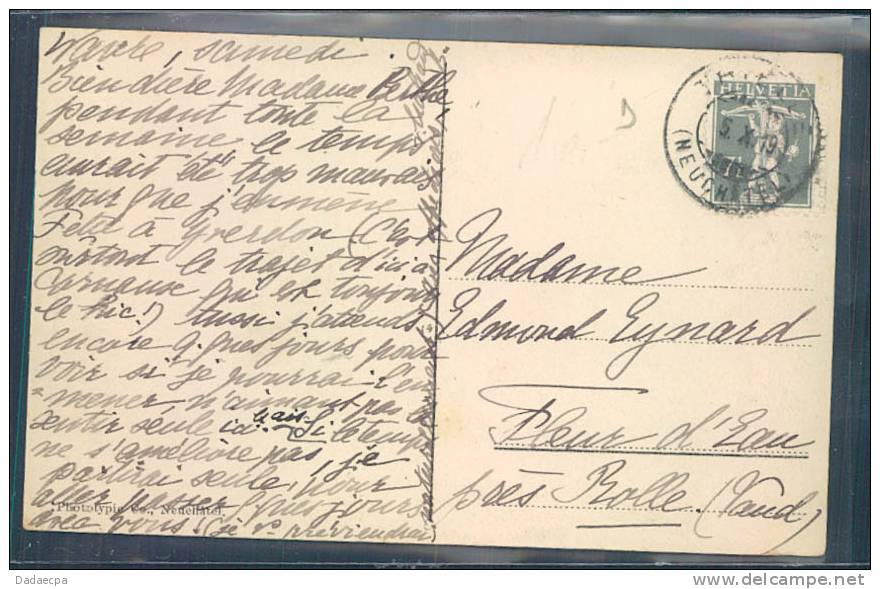 samedi.
Bien chère Madame
pendant toute la
semaine le temps
aurait été trop mauvais
pour que j'emmène
à Yverdon (c'est
surtout le trajet d'ici à
qui est toujours
le hic!) Aussi j'attends
encore qques jours pour
voir si je pourrai l'em-
mener, n'aimant pas la
sentir seule ici. Mais si le temps
ne s'améliore pas, je
partirai seule, pour
aller passer qques jours
avec vous. (je vs préviendrai)
Phototypie Co., Neuchâtel.
HELVETIA
5. X. 19
(NEUCHÂTEL)
Madame
Edmond Eynard
Fleur d'Eau
près Rolle. (Vaud)
Dadaecpa
www.delcampe.net